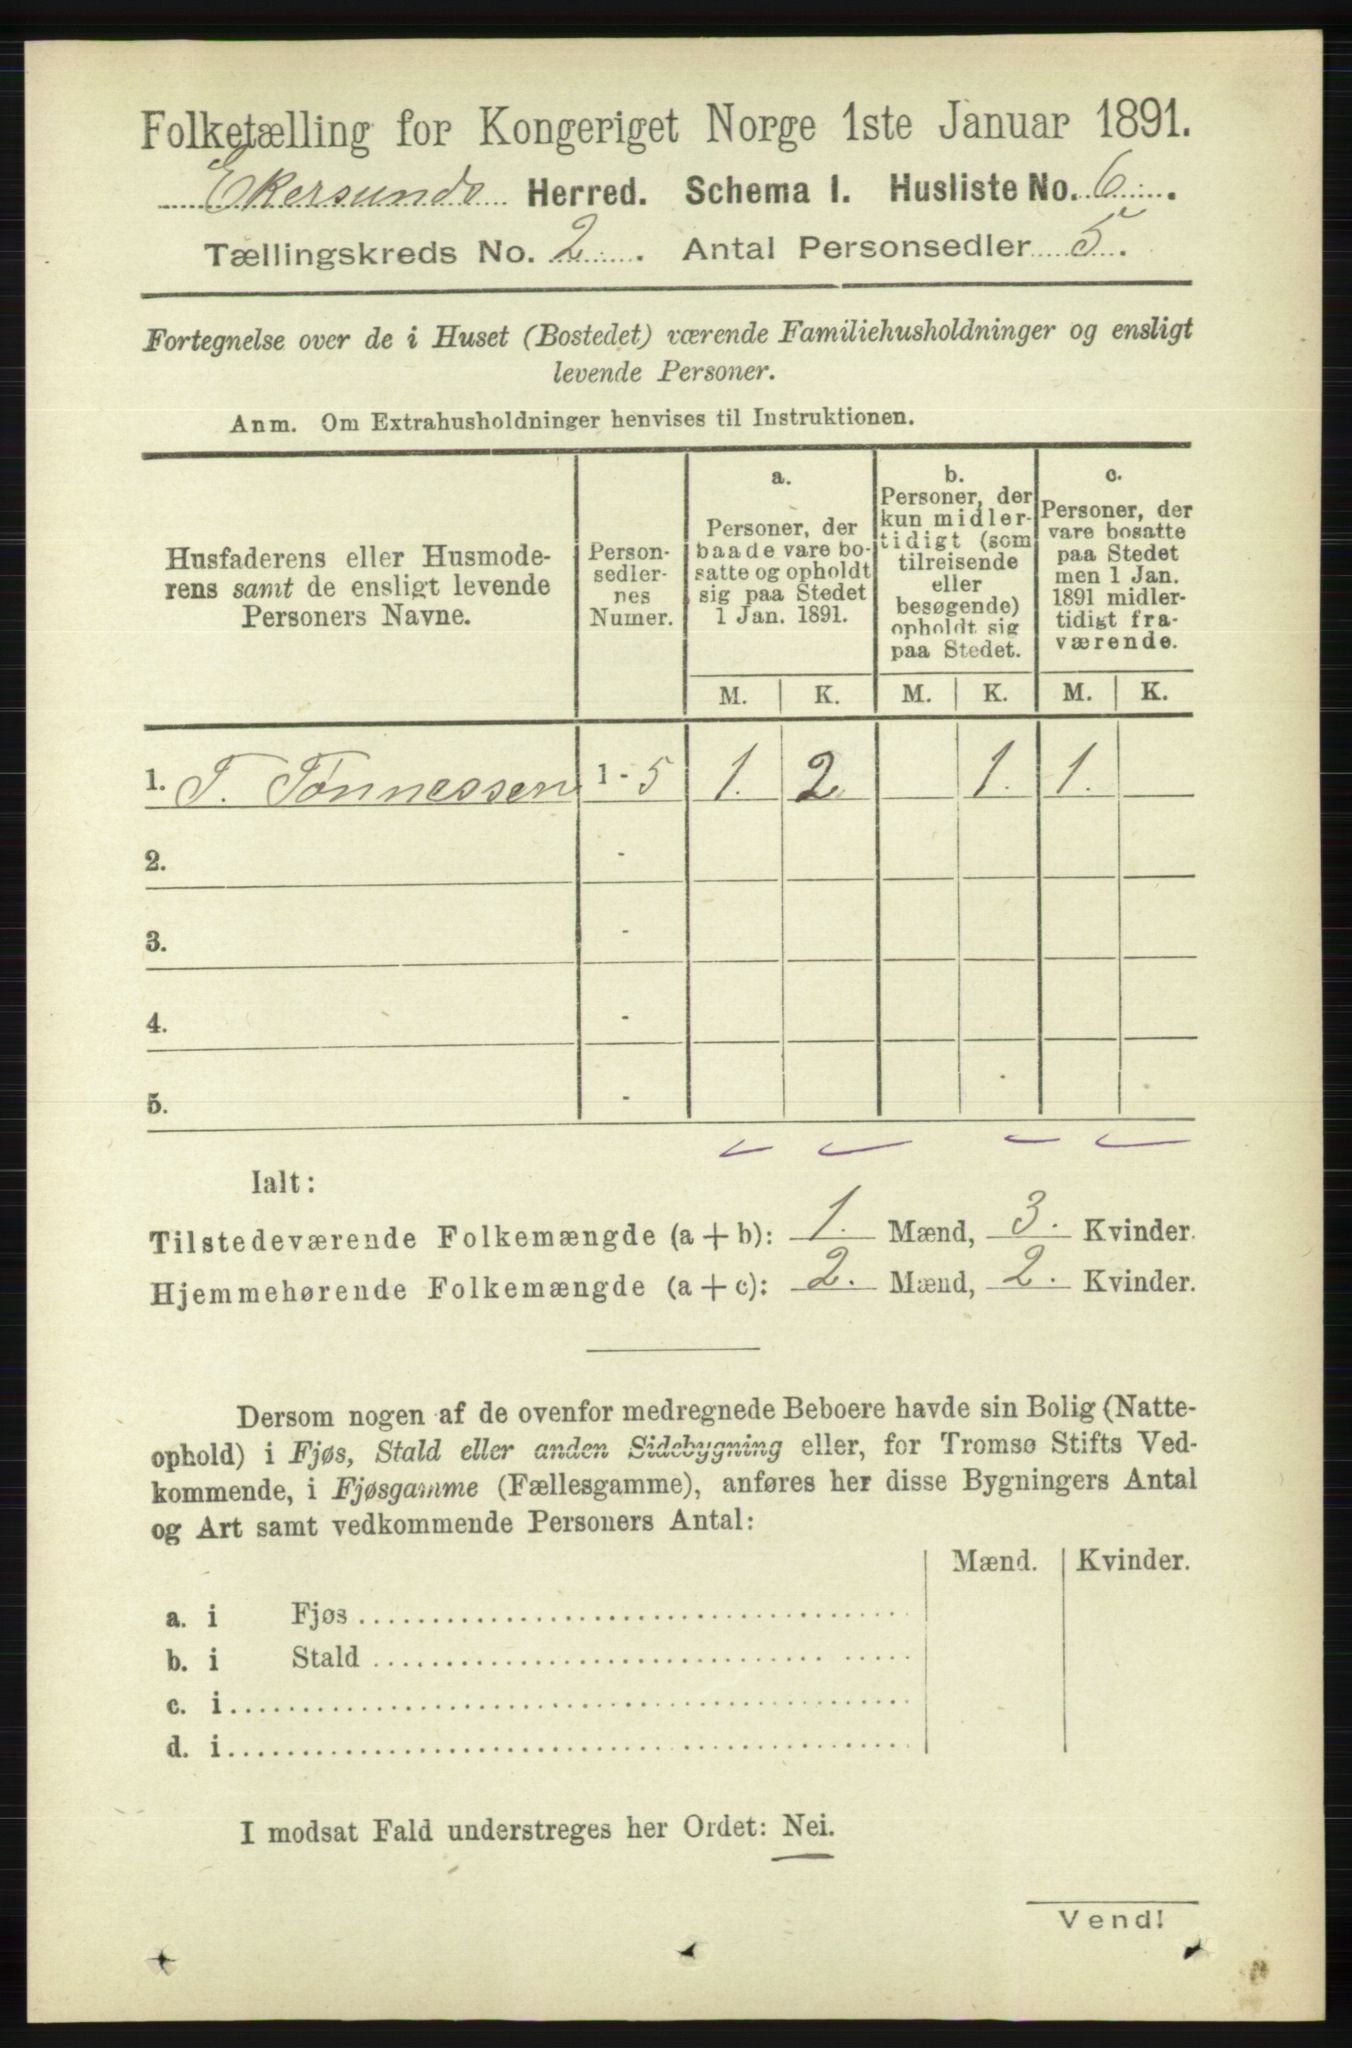 Folketælling for Kongeriget Norge 1ste Januar 1891.
Ekersunds Herred. Schema I. Husliste No. 6.
Tællingskreds No. 2. Antal Personsedler 5.
Fortegnelse over de i Huset (Bostedet) værende Familiehusholdninger og ensligt
levende Personer.
Anm. Om Extrahusholdninger henvises til Instruktionen.
Husfaderens eller Husmode-
rens samt de ensligt levende
Personers Navne.
Person-
sedler-
nes
Numer.
a.
Personer, der
baade vare bo-
satte og opholdt
sig paa Stedet
1 Jan. 1891.
b.
Personer, der
kun midler-
tidigt (som
tilreisende
eller
besøgende)
opholdt sig
paa Stedet.
c.
Personer, der
vare bosatte
paa Stedet
men 1 Jan.
1891 midler-
tidigt fra-
værende.
M. K. M. K. M. K.
1. T. Tønnessen 1 - 5 1. 2. 1. 1.
2. -
3. -
4. -
5. -
Ialt:
Tilstedeværende Folkemængde (a + b): 1. Mænd, 3. Kvinder.
Hjemmehørende Folkemængde (a + c): 2. Mænd, 2. Kvinder.
Dersom nogen af de ovenfor medregnede Beboere havde sin Bolig (Natte-
ophold) i Fjøs, Stald eller anden Sidebygning eller, for Tromsø Stifts Ved-
kommende, i Fjøsgamme (Fællesgamme), anføres her disse Bygningers Antal
og Art samt vedkommende Personers Antal:
Mænd. Kvinder.
a. i Fjøs
b. i Stald
c. i
d. i
I modsat Fald understreges her Ordet: Nei.
Vend!